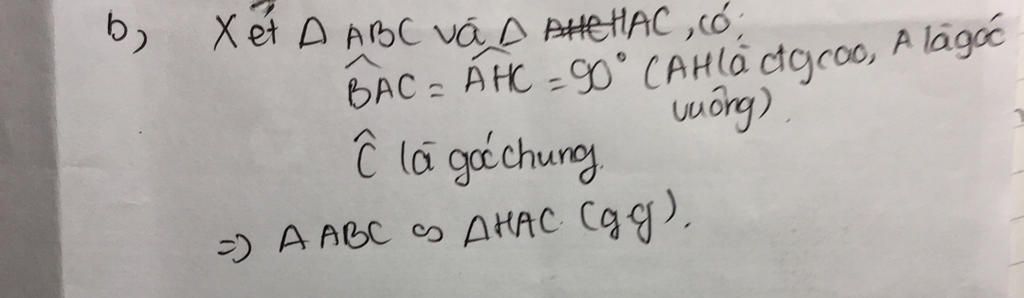 b, Xét Δ ABC và Δ HAC, có:
B̂AC = ÂHC = 90° (AH là đg cao, A là góc
vuông).
Ĉ là góc chung.
=> Δ ABC ∽ ΔHAC (gg).